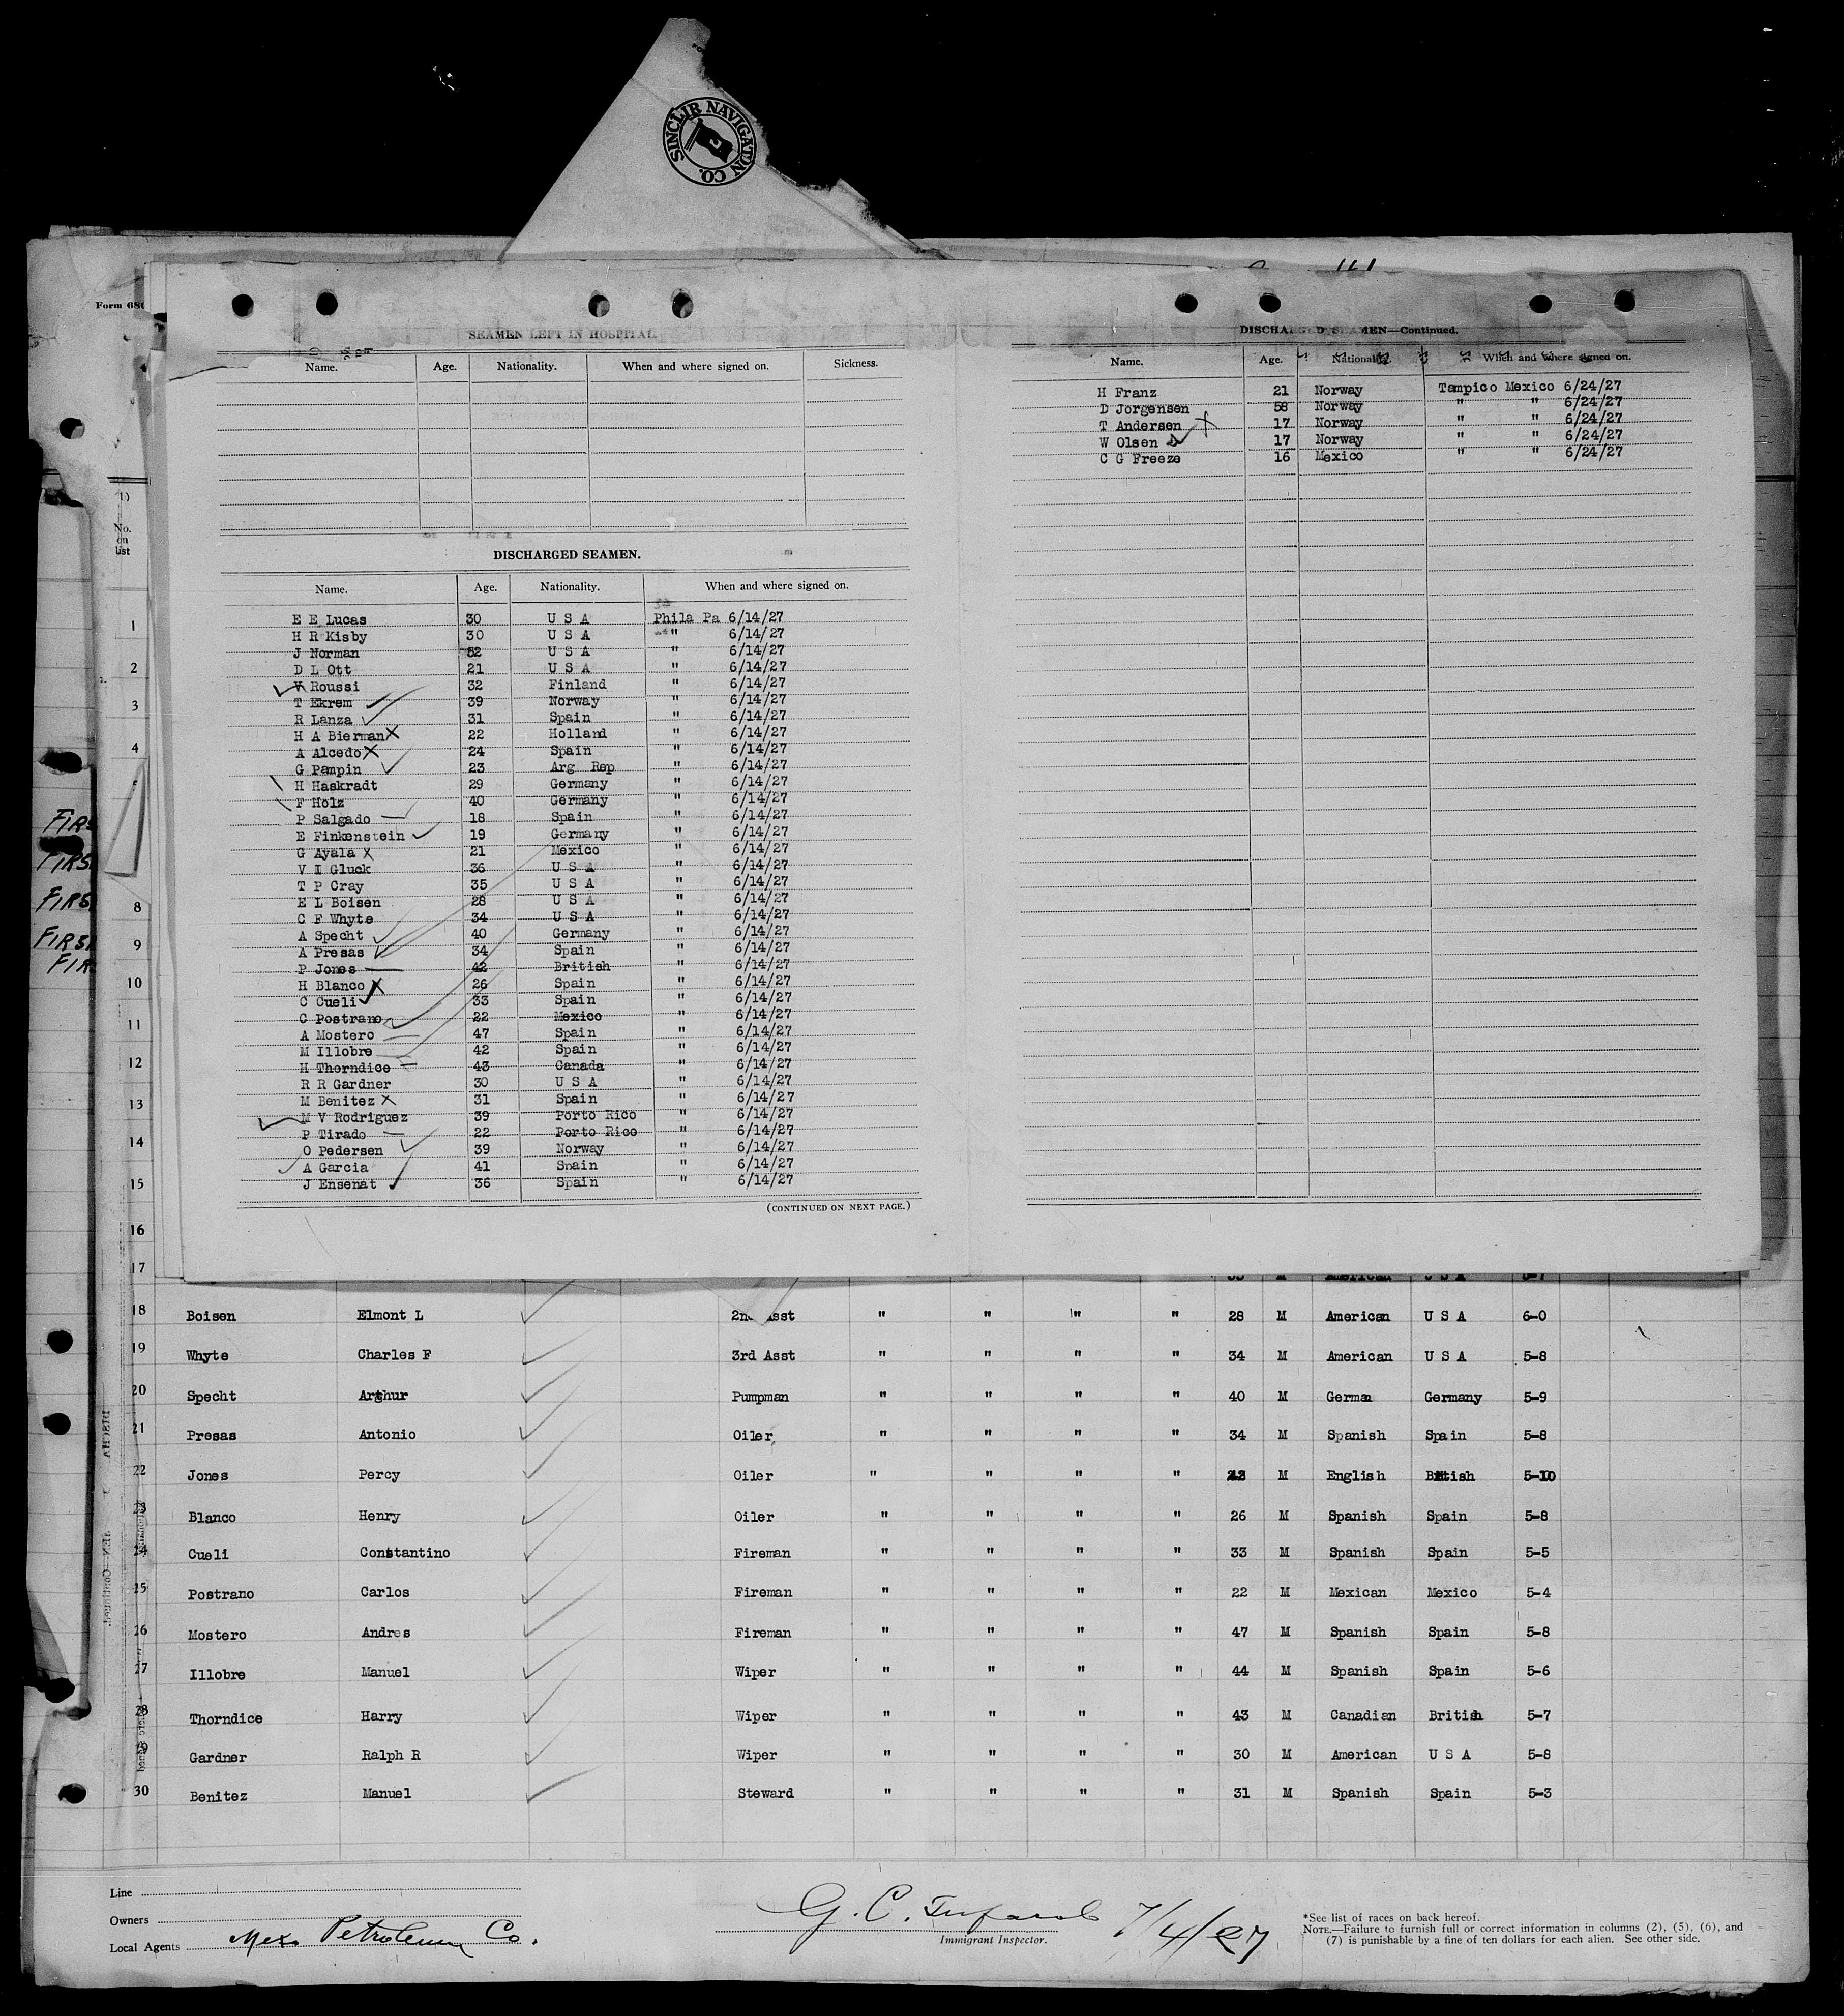 SINCLIR NAVIGATON CO.
Form 680
SEAMEN LEFT IN HOSPITAL.
Name. Age. Nationality. When and where signed on. Sickness.
DISCHARGED SEAMEN.
Name. Age. Nationality. When and where signed on.
E E Lucas 30 U S A Phila Pa 6/14/27
H R Kisby 30 U S A " 6/14/27
J Norman 52 U S A " 6/14/27
D L Ott 21 U S A " 6/14/27
Roussi 32 Finland " 6/14/27
T Ekrem 39 Norway " 6/14/27
R Lanza 31 Spain " 6/14/27
H A Bierman 22 Holland " 6/14/27
A Alcedo 24 Spain " 6/14/27
G Pampin 23 Arg Rep " 6/14/27
H Haskradt 29 Germany " 6/14/27
F Holz 40 Germany " 6/14/27
P Salgado 18 Spain " 6/14/27
E Finkenstein 19 Germany " 6/14/27
G Ayala 21 Mexico " 6/14/27
V I Gluck 36 U S A " 6/14/27
T P Cray 35 U S A " 6/14/27
E L Boisen 28 U S A " 6/14/27
C F Whyte 34 U S A " 6/14/27
A Specht 40 Germany " 6/14/27
A Presas 34 Spain " 6/14/27
P Jones 42 British " 6/14/27
H Blanco 26 Spain " 6/14/27
C Cueli 33 Spain " 6/14/27
C Postrano 22 Mexico " 6/14/27
A Mostero 47 Spain " 6/14/27
M Illobre 42 Spain " 6/14/27
H Thorndice 43 Canada " 6/14/27
R R Gardner 30 U S A " 6/14/27
M Benitez 31 Spain " 6/14/27
M V Rodriguez 39 Porto Rico " 6/14/27
P Tirado 22 Porto Rico " 6/14/27
O Pedersen 39 Norway " 6/14/27
A Garcia 41 Spain " 6/14/27
J Ensenat 36 Spain " 6/14/27
(CONTINUED ON NEXT PAGE.)
DISCHARGED SEAMEN—Continued.
Name. Age. Nationality. When and where signed on.
H Franz 21 Norway Tampico Mexico 6/24/27
D Jorgensen 58 Norway " " 6/24/27
T Andersen 17 Norway " " 6/24/27
W Olsen 17 Norway " " 6/24/27
C G Freeze 16 Mexico " " 6/24/27
No. on list
1
2
3
4
8
9
10
11
12
13
14
15
16
17 American U S A 5-7
18 Boisen Elmont L 2nd Asst " " " " 28 M American U S A 6-0
19 Whyte Charles F 3rd Asst " " " " 34 M American U S A 5-8
20 Specht Arthur Pumpman " " " " 40 M German Germany 5-9
21 Presas Antonio Oiler " " " " 34 M Spanish Spain 5-8
22 Jones Percy Oiler " " " " 42 M English British 5-10
23 Blanco Henry Oiler " " " " 26 M Spanish Spain 5-8
24 Cueli Constantino Fireman " " " " 33 M Spanish Spain 5-5
25 Postrano Carlos Fireman " " " " 22 M Mexican Mexico 5-4
26 Mostero Andres Fireman " " " " 47 M Spanish Spain 5-8
27 Illobre Manuel Wiper " " " " 44 M Spanish Spain 5-6
28 Thorndice Harry Wiper " " " " 43 M Canadian British 5-7
29 Gardner Ralph R Wiper " " " " 30 M American U S A 5-8
30 Benitez Manuel Steward " " " " 31 M Spanish Spain 5-3
FIRS
FIRS
FIRS
FIRS
FIR
Line
Owners
Local Agents Mex Petroleum Co.
G. C. 7/4/27
Immigrant Inspector.
*See list of races on back hereof.
NOTE.—Failure to furnish full or correct information in columns (2), (5), (6), and
(7) is punishable by a fine of ten dollars for each alien. See other side.